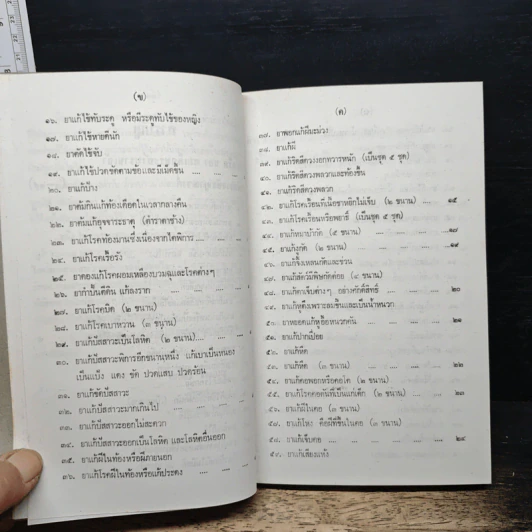 (ข)
๑๖. ยาแก้ไข้ทับระดู หรือมีระดูทับไข้ของหญิง
๑๗. ยาแก้ไข้หายดีนัก
๑๘. ยาตัดไข้จับ
๑๙. ยาแก้ไข้ปวดขัดตามข้อและเมื่อยขึ้น .... ....
๒๐. ยาแก้บ้าง
๒๑. ยาต้มกินแก้ท้องเดือดในเวลากลางคืน
๒๒. ยาต้มแก้อุจจาระธาตุ (ตำราตาช้าง)
๒๓. ยาแก้โรคท้องมานซึ่งเนื่องจากไตพิการ .... ....
๒๔. ยาแก้โรคเรื้อรัง
๒๕. ยาดองแก้โรคผอมเหลืองบวมฉุและโรคต่างๆ
๒๖. ยากำบั้นตีดิน แก้ลงราก .... .... ....
๒๗. ยาแก้โรคบิด (๒ ขนาน)
๒๘. ยาแก้โรคเบาหวาน (๓ ขนาน)
๒๙. ยาแก้ปัสสาวะเป็นโลหิต (๒ ขนาน).... ....
๓๐. ยาแก้ปัสสาวะพิการอีกขนานหนึ่ง แก้เบาเป็นหนอง
เป็นแป้ง แดง ขัด ปวดแสบ ปวดร้อน
๓๑. ยาแก้ขัดปัสสาวะ
๓๒. ยาแก้ปัสสาวะมากเกินไป .... .... ....
๓๓. ยาแก้ปัสสาวะออกไม่สะดวก
๓๔. ยาแก้ปัสสาวะออกเป็นโลหิต และโลหิตอื่นออก
๓๕. ยาแก้ฝีในท้องหรือฝีภายนอก
๓๖. ยาแก้โรคฝีในท้องหรือแก้ประดง .... .... ....
(ค)
๓๗. ยาพอกแก้ฝีมะม่วง
๓๘. ยาแก้ฝี
๓๙. ยาแก้ริดสีดวงงอกทวารหนัก (เป็นชุด ๕ ชุด)
๔๐. ยาแก้ริดสีดวงพลวกและท้องขึ้น
๔๑. ยาแก้ริดสีดวงพลวก
๔๒. ยาแก้โรคเรื้อนกินเนื้อชาหยิกไม่เจ็บ (๒ ขนาน) .... ๑๕
๔๓. ยาแก้โรคเรื้อนหรือพยาธิ์ (เป็นชุด ๕ ชุด)
๔๔. ยาแก้หมาบ้ากัด (๕ ขนาน) .... .... .... ๑๗
๔๕. ยาแก้งูกัด (๒ ขนาน) .... .... .... ๑๙
๔๖. ยาแก้จิ้งเหลนกัดและข่วน
๔๗. ยาแก้สัตว์มีพิษกัดต่อย (๔ ขนาน)
๔๘. ยาแก้ตาเจ็บต่างๆ อย่างศักดิ์สิทธิ์ .... ....
๔๙. ยาแก้หูตึงเพราะลมขึ้นและเป็นน้ำหนวก
๕๐. ยาหยอดแก้หูอื้อหนวกตัน .... .... .... ๒๑
๕๑. ยาแก้ปากเปื่อย
๕๒. ยาแก้หืด
๕๓. ยาแก้หืด (๓ ขนาน) .... .... .... ๒๒
๕๔. ยาแก้คอพอกหรือคอโต (๒ ขนาน)
๕๕. ยาแก้โรคคอตันที่เป็นแก่เด็ก (๒ ขนาน) .... ๒๓
๕๖. ยาแก้ฝีในคอ (๓ ขนาน)
๕๗. ยาแก้โหง คือฝีที่ขึ้นในคอ (๓ ขนาน)
๕๘. ยาแก้เจ็บคอ .... .... .... .... ๒๔
๕๙. ยาแก้เสียงแห้ง